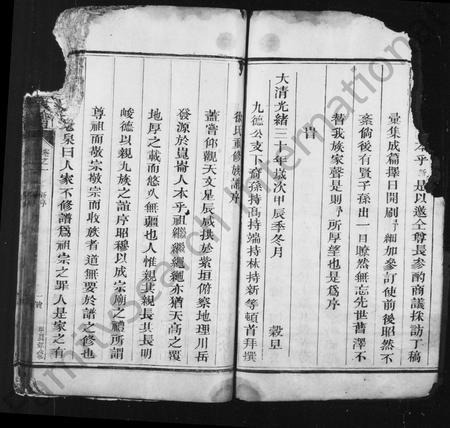 本乎是以邀仝尊長參酌商議採訪丁稿
彙集成篇擇日開刷予細加參訂使前後昭然不
紊倘後有賢子孫出一目瞭然無忘先世舊澤不
替我族家聲是則予所厚望也是為序
旹
大清光緒三十年歲次甲辰季冬月 穀旦
九德公支下裔孫持高持端持林持新等頓首拜撰
氏重修族譜序
蓋嘗仰觀天文星辰咸拱於紫垣俯察地理川岳
發源於崑崙人本乎祖繼繼繩繩亦猶天高之覆
地厚之載而悠久無疆也人惟親其親長其長明
峻德以親九族之誼序昭穆以成宗廟之禮所謂
尊祖而敬宗敬宗而收族者道無要於譜之修也
老泉曰人家不修譜為祖宗之罪人是家之有